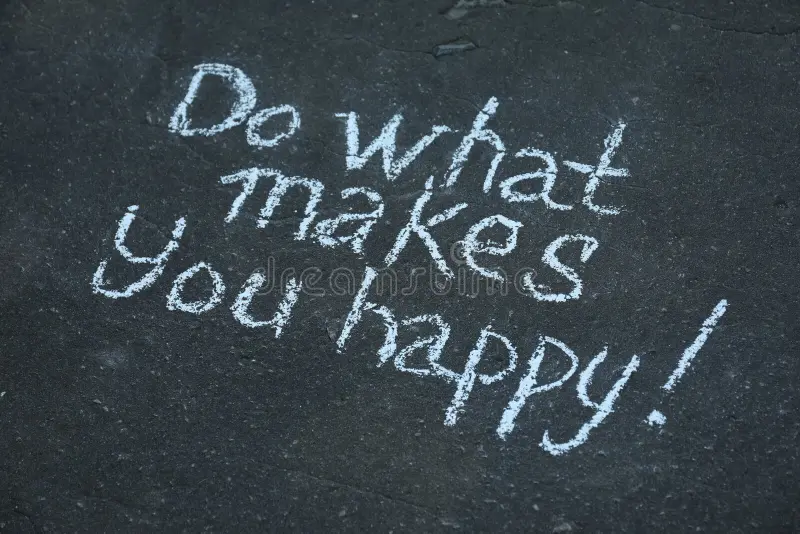 Do what
makes
you happy!
dreamstime